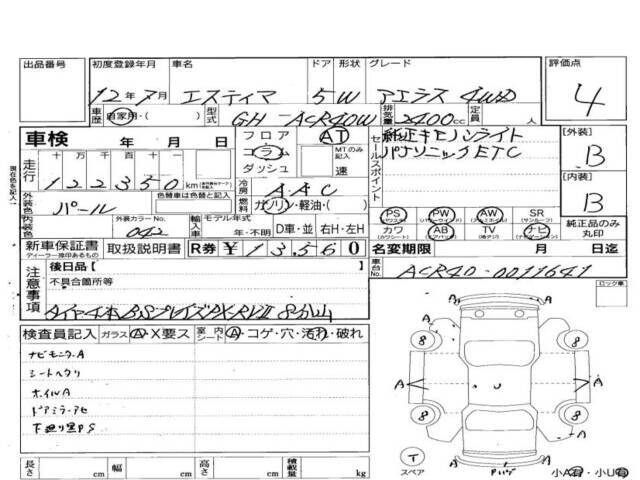 出品番号 初度登録年月 車名 ドア 形状 グレード 評価点
12年7月 エスティマ 5W アエラス 4WD 4
車歴 自家用・( ) 型式 GH-ACR40W 排気量 2400cc 定員 人
車検 年 月 日 フロア コラム ダッシュ AT MTのみ記入 速
セールスポイント 純正キセノンライト
パナソニックETC
[外装] B
走行 十万 万 千 百 十 一
122350km
[内装] B
外装色 パール 色替車は色替と記入
冷房 AAC
燃料 ガソリン・軽油・( )
外装カラーNo. 042
輸入車 モデル年式 年・不明 D車・並 右H・左H
PS PW AW SR
(パワステ) (サンルーフ)
カワ AB TV ナビ
(カワシート) (エアバッグ)
純正品のみ丸印
新車保証書 取扱説明書 R券 ¥13,560
ディーラー捺印あるもの
名変期限 月 日迄
車台No. ACR40-0011641
注意事項 後日品【
不具合箇所等
タイヤ4本BSブレイズAK-RVⅡ 8分山
ロック車
検査員記入 ガラス A・X要ス 室内シート A・コゲ・穴・汚れ・破れ
ナビモニタ.A
シートヘタリ
ホイルA
ドアミラーアセ
下廻り宣PS
A A
8 8
A A
U
8 8
A A
T
スペア
小A有・小U有
長さ cm 幅 cm 高さ cm 積載量 kg